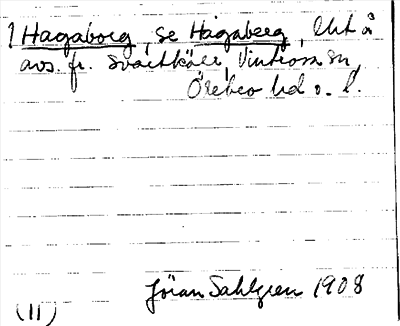 1 Hagaborg, se Hagaberg, lht å
avs. fr. Svartkärr, Vintrosa sn,
Örebro hd o. l.
Jöran Sahlgren 1908
(11)